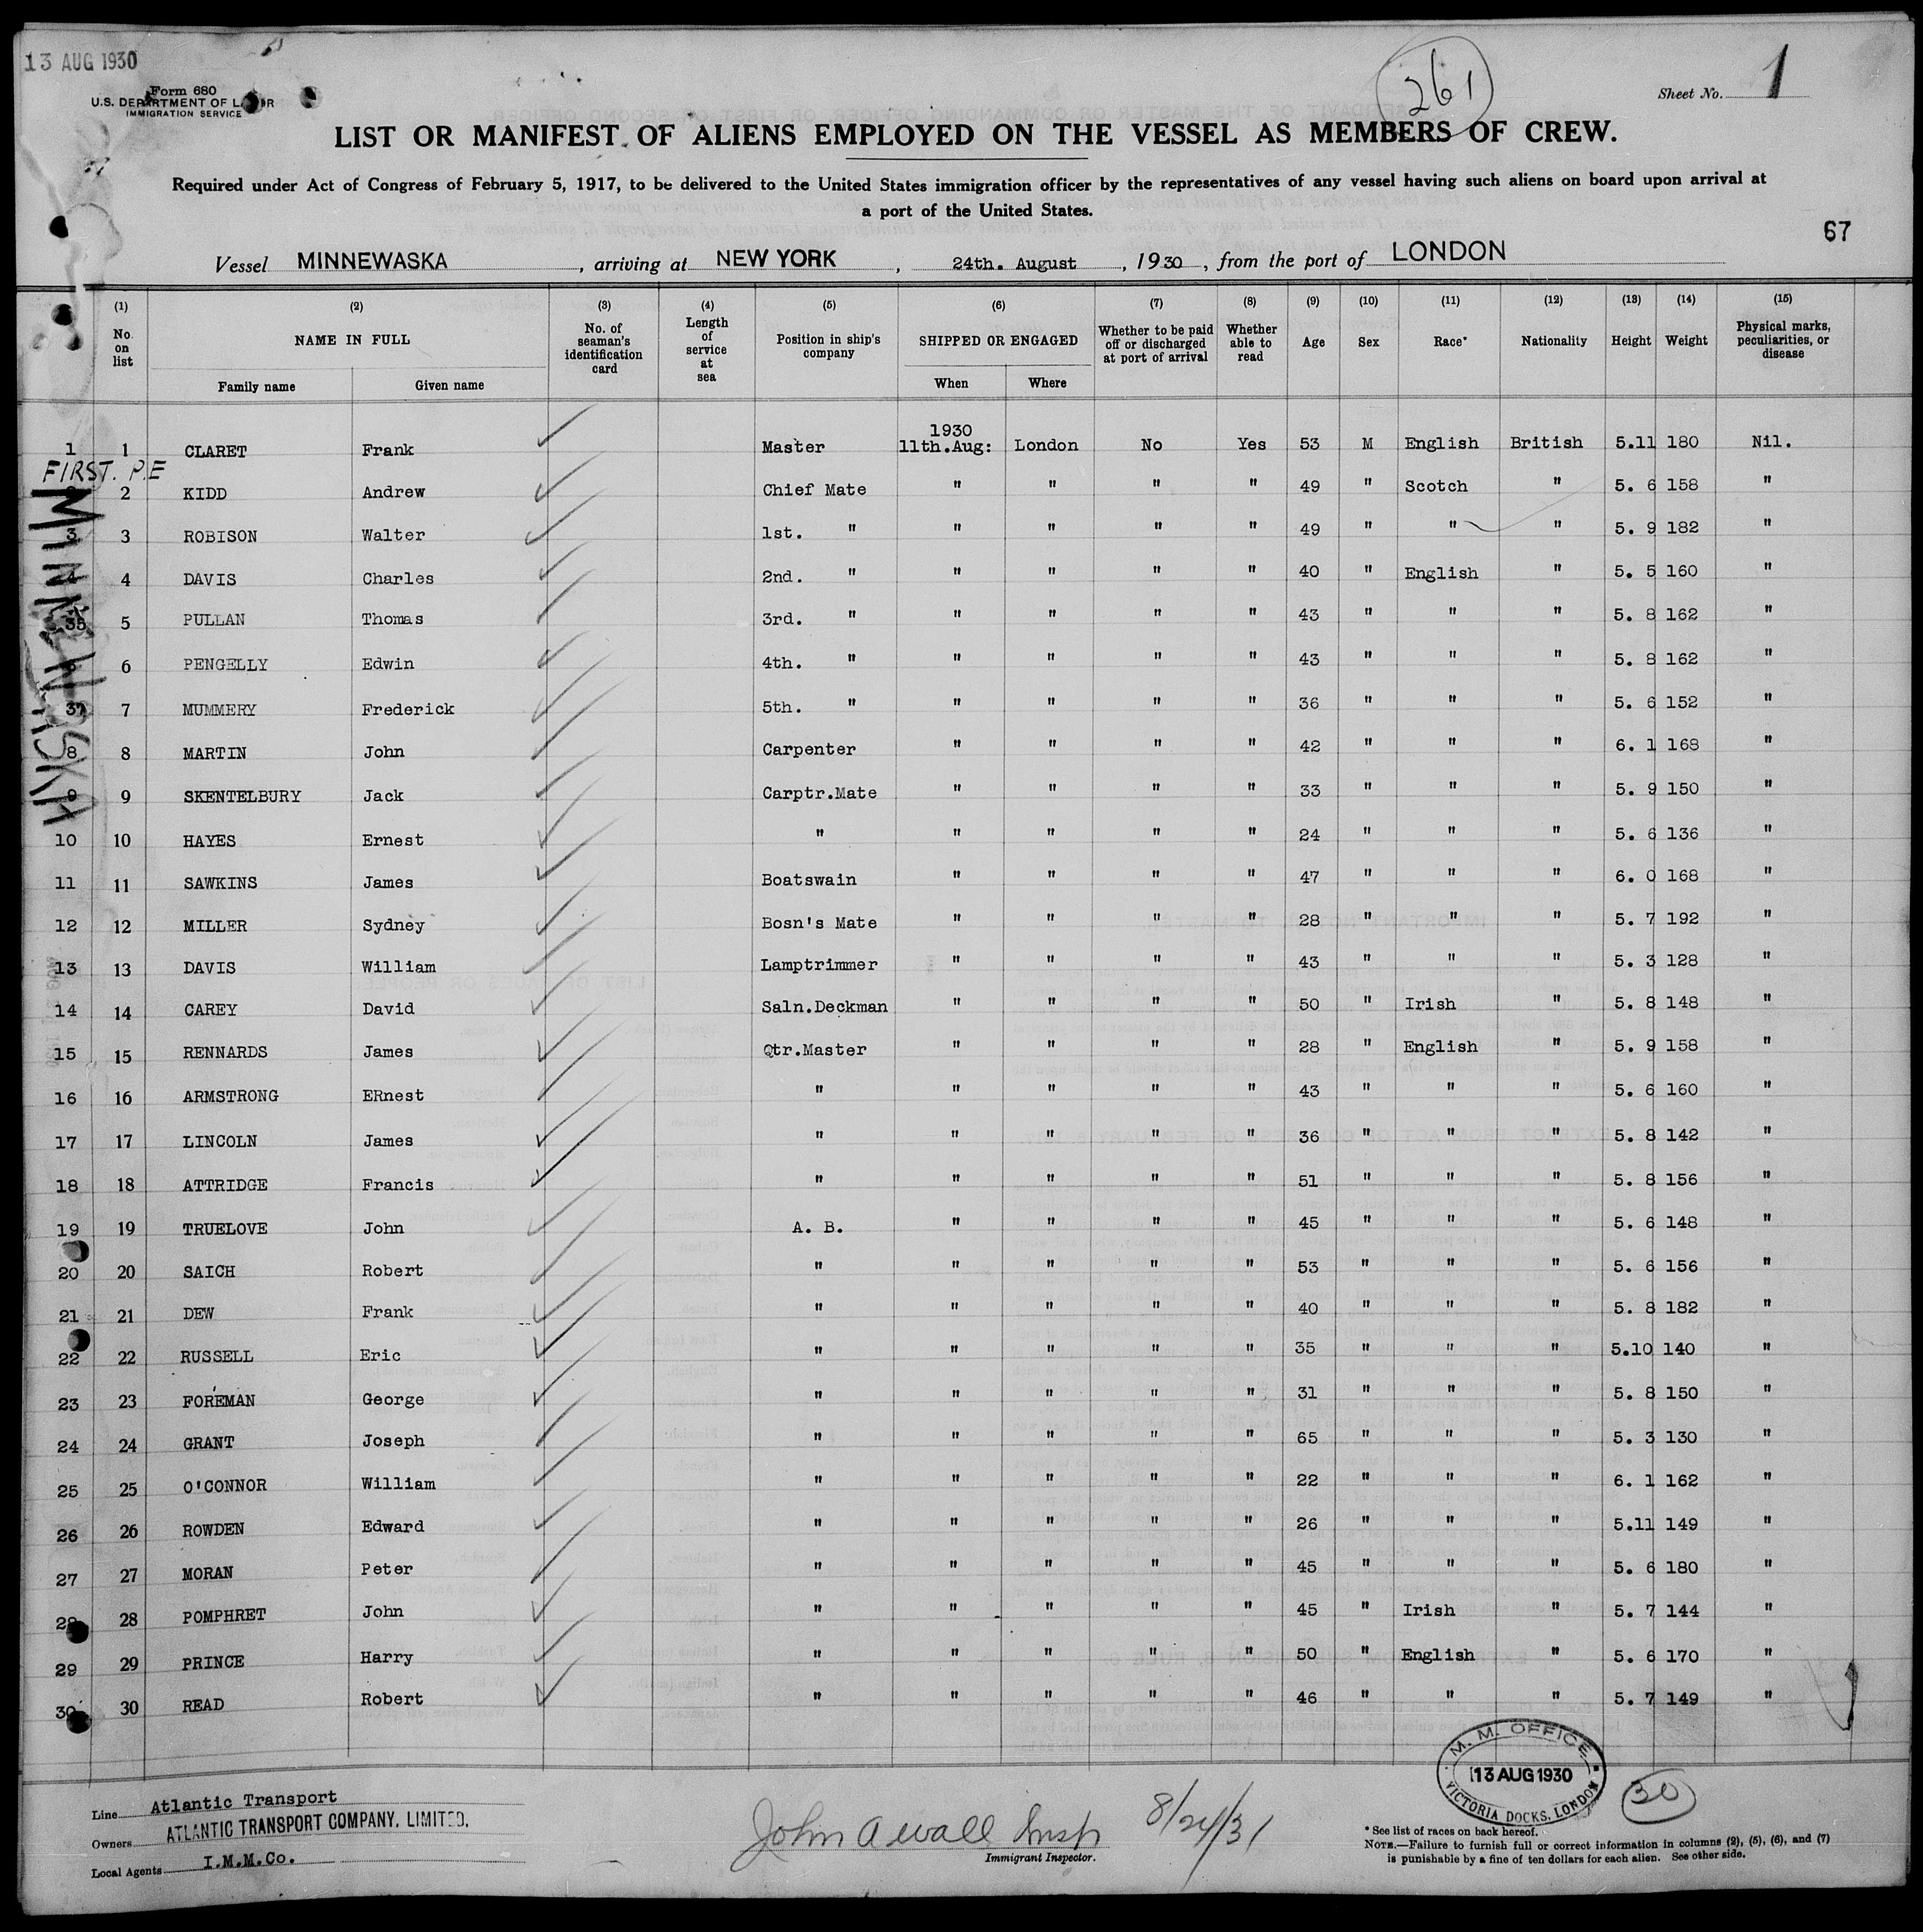 13 AUG 1930
Form 680
U.S. DEPARTMENT OF LABOR
IMMIGRATION SERVICE
261
Sheet No. 1
LIST OR MANIFEST OF ALIENS EMPLOYED ON THE VESSEL AS MEMBERS OF CREW.
Required under Act of Congress of February 5, 1917, to be delivered to the United States immigration officer by the representatives of any vessel having such aliens on board upon arrival at
a port of the United States.
67
Vessel MINNEWASKA, arriving at NEW YORK, 24th. August, 1930, from the port of LONDON
(1) (2) (3) (4) (5) (6) (7) (8) (9) (10) (11) (12) (13) (14) (15)
No. on list NAME IN FULL No. of seaman's identification card Length of service at sea Position in ship's company SHIPPED OR ENGAGED Whether to be paid off or discharged at port of arrival Whether able to read Age Sex Race* Nationality Height Weight Physical marks, peculiarities, or disease
Family name Given name When Where
1930
1 1 CLARET Frank Master 11th.Aug: London No Yes 53 M English British 5.11 180 Nil.
FIRST. P.E
MINNEWASKA
2 KIDD Andrew Chief Mate " " " " 49 " Scotch " 5. 6 158 "
3 3 ROBISON Walter 1st. " " " " " 49 " " " 5. 9 182 "
4 DAVIS Charles 2nd. " " " " " 40 " English " 5. 5 160 "
35 5 PULLAN Thomas 3rd. " " " " " 43 " " " 5. 8 162 "
6 PENGELLY Edwin 4th. " " " " " 43 " " " 5. 8 162 "
37 7 MUMMERY Frederick 5th. " " " " " 36 " " " 5. 6 152 "
8 8 MARTIN John Carpenter " " " " 42 " " " 6. 1 168 "
9 9 SKENTELBURY Jack Carptr.Mate " " " " 33 " " " 5. 9 150 "
10 10 HAYES Ernest " " " " " 24 " " " 5. 6 136 "
11 11 SAWKINS James Boatswain " " " " 47 " " " 6. 0 168 "
12 12 MILLER Sydney Bosn's Mate " " " " 28 " " " 5. 7 192 "
13 13 DAVIS William Lamptrimmer " " " " 43 " " " 5. 3 128 "
14 14 CAREY David Saln.Deckman " " " " 50 " Irish " 5. 8 148 "
15 15 RENNARDS James Qtr.Master " " " " 28 " English " 5. 9 158 "
16 16 ARMSTRONG ERnest " " " " " 43 " " " 5. 6 160 "
17 17 LINCOLN James " " " " " 36 " " " 5. 8 142 "
18 18 ATTRIDGE Francis " " " " " 51 " " " 5. 8 156 "
19 19 TRUELOVE John A. B. " " " " 45 " " " 5. 6 148 "
20 20 SAICH Robert " " " " " 53 " " " 5. 6 156 "
21 21 DEW Frank " " " " " 40 " " " 5. 8 182 "
22 22 RUSSELL Eric " " " " " 35 " " " 5.10 140 "
23 23 FOREMAN George " " " " " 31 " " " 5. 8 150 "
24 24 GRANT Joseph " " " " " 65 " " " 5. 3 130 "
25 25 O'CONNOR William " " " " " 22 " " " 6. 1 162 "
26 26 ROWDEN Edward " " " " " 26 " " " 5.11 149 "
27 27 MORAN Peter " " " " " 45 " " " 5. 6 180 "
28 28 POMPHRET John " " " " " 45 " Irish " 5. 7 144 "
29 29 PRINCE Harry " " " " " 50 " English " 5. 6 170 "
30 30 READ Robert " " " " " 46 " " " 5. 7 149 "
M. M. OFFICE
13 AUG 1930
VICTORIA DOCKS, LONDON
30
Line Atlantic Transport
Owners ATLANTIC TRANSPORT COMPANY, LIMITED.
Local Agents I.M.M.Co.
John A Wall Insp 8/24/31
Immigrant Inspector.
* See list of races on back hereof.
NOTE.—Failure to furnish full or correct information in columns (2), (5), (6), and (7)
is punishable by a fine of ten dollars for each alien. See other side.